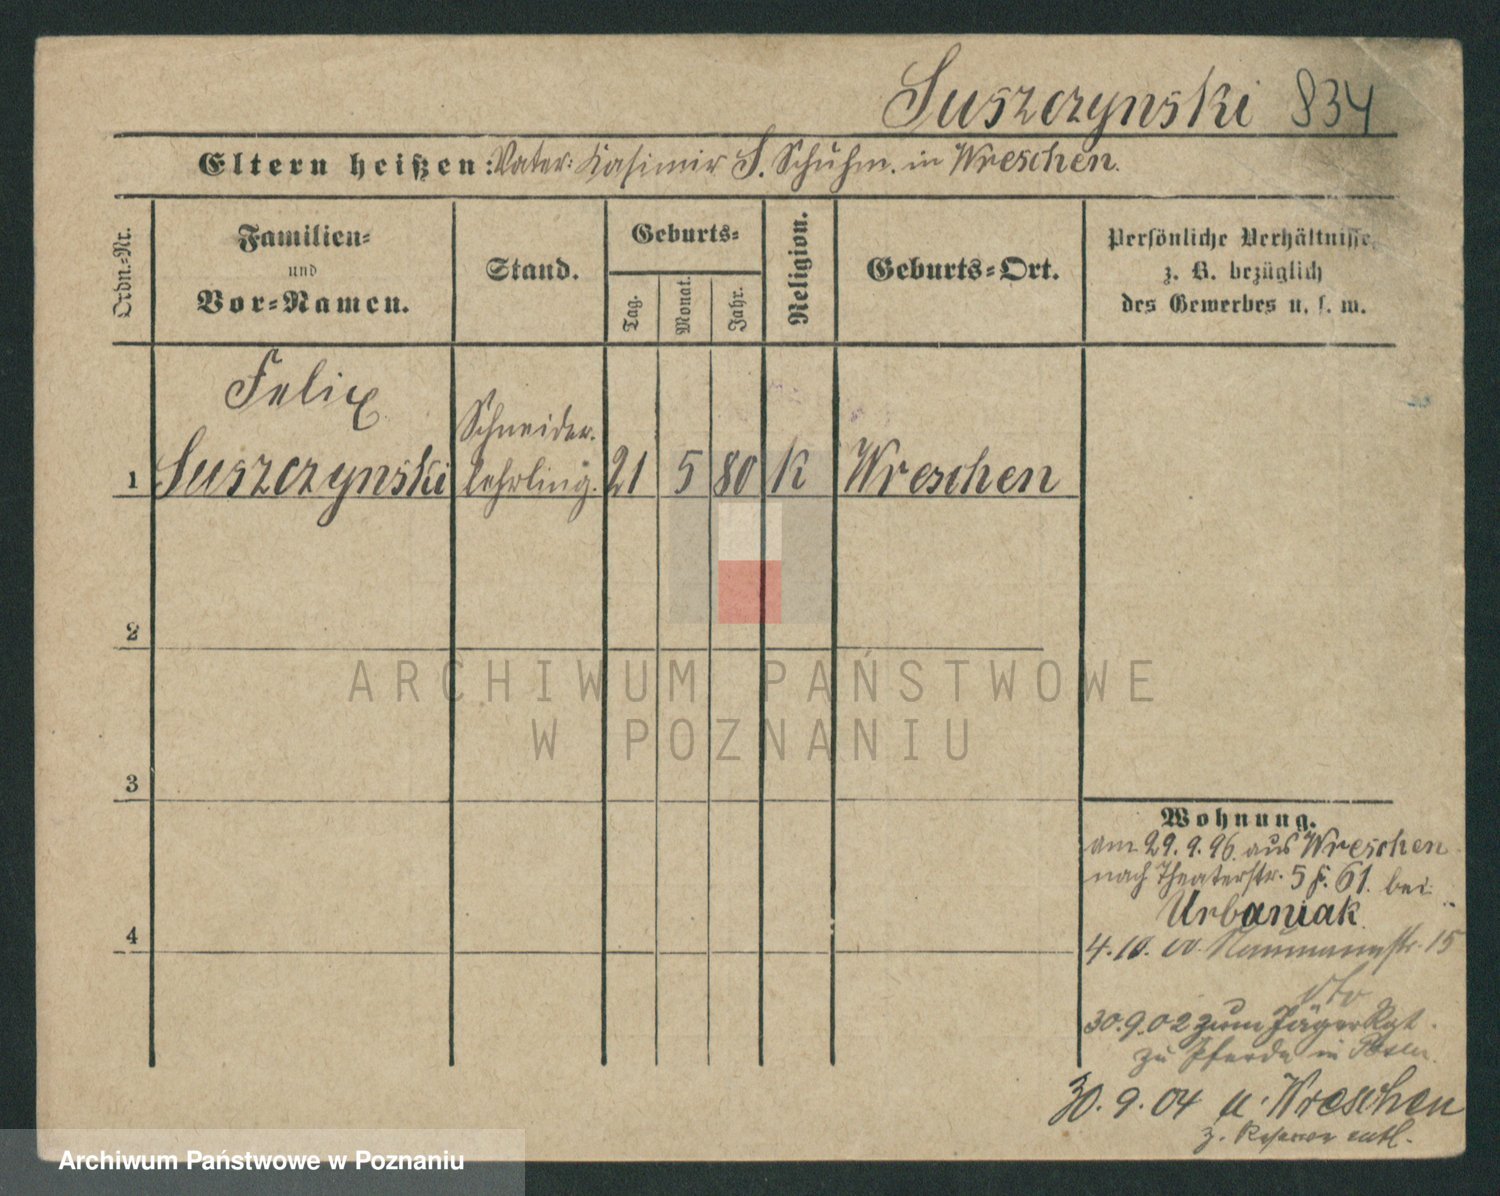 Suszczynski 834
Eltern heißen: Vater: Kasimir S. Schuhm. in Wreschen.
Ordn.-Nr.
Familien-
und
Vor-Namen.
Stand.
Geburts-
Tag.
Monat.
Jahr.
Religion.
Geburts-Ort.
Persönliche Verhältnisse,
z. B. bezüglich
des Gewerbes u. s. w.
Felix
Schneider-
1 Suszczynski lehrling. 21 5 80 K Wreschen
2
ARCHIWUM PAŃSTWOWE
W POZNANIU
3
Wohnung.
am 29.9.96. aus Wreschen
nach Theaterstr. 5 F. 61. bei
Urbaniak.
4
4.10.00. Naumannstr. 15
30.9.02 zum Jäger Rgt.
zu Pferde in Posen.
30.9.04 n. Wreschen
z. Reserve entl.
Archiwum Państwowe w Poznaniu